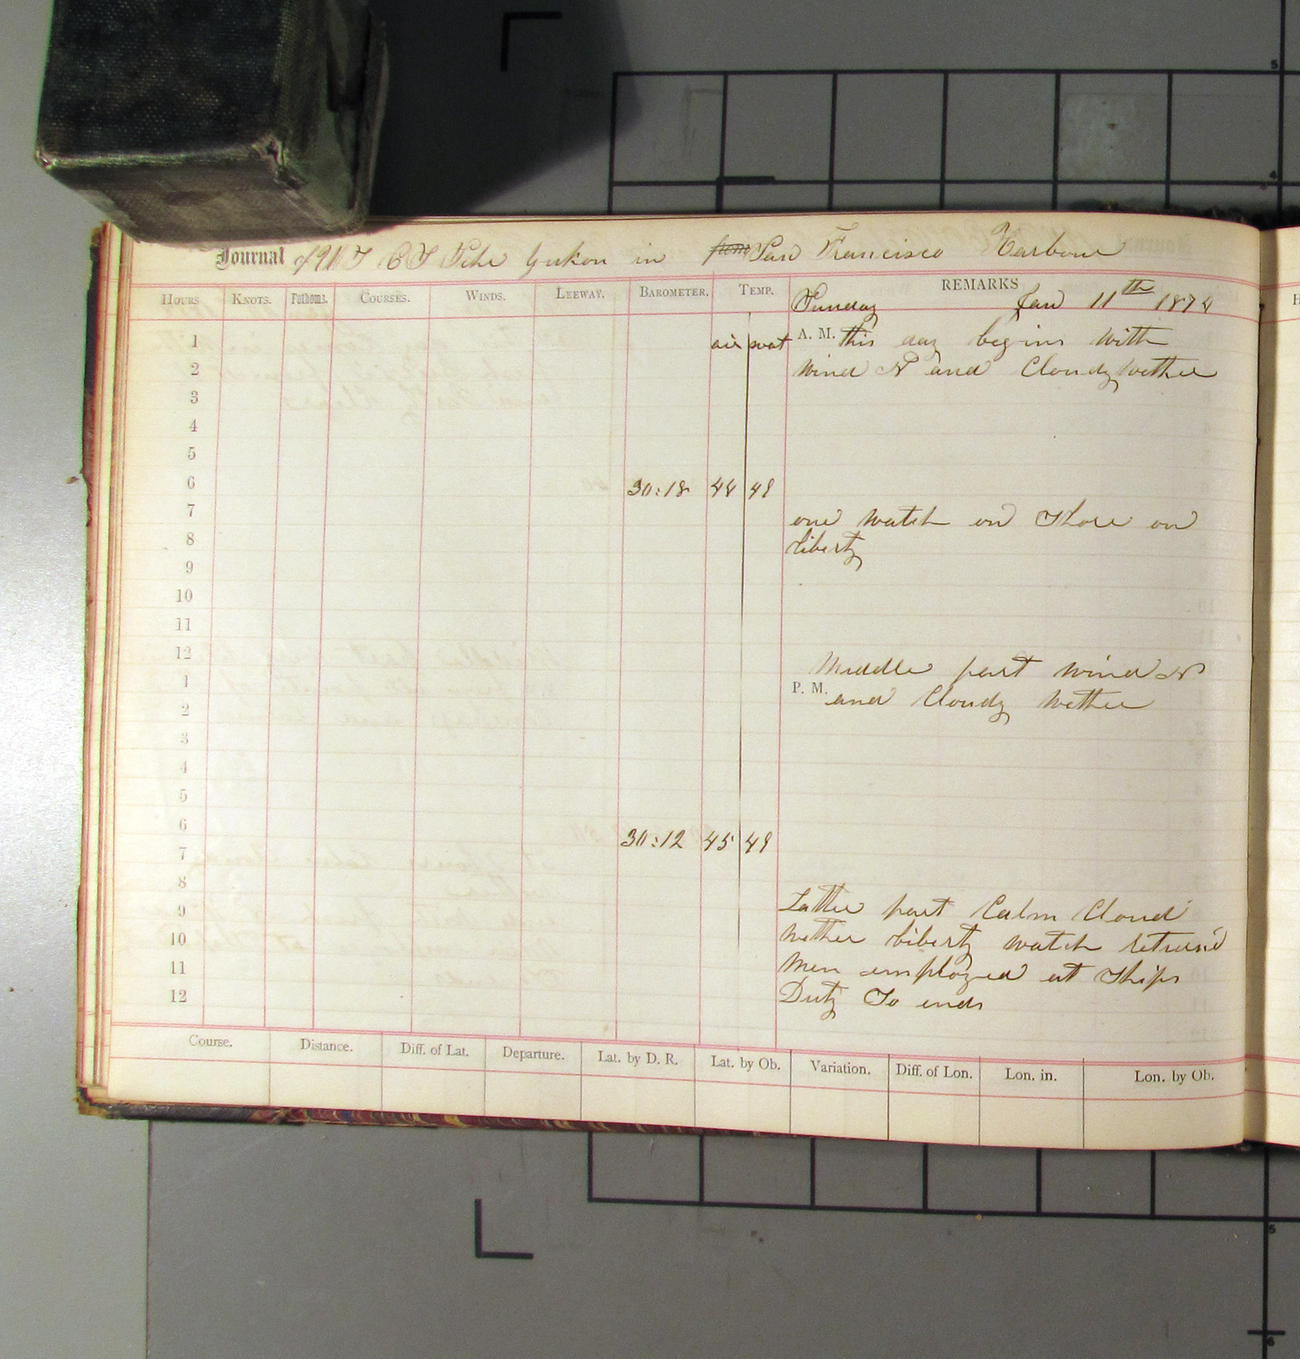 Journal of U S C S Schr Yukon in San Francisco Harbour
HOURS KNOTS. Fathoms. COURSES. WINDS. LEEWAY. BAROMETER. TEMP. REMARKS
Sunday Jan 11th 1874
1 air wat A. M. this day begins with
2 wind N and Cloudy wether
3
4
5
6 30:18 44 49
7 one watch on Shore on
8 liberty
9
10
11
12 Middle part wind N
1 P. M. and Cloudy wether
2
3
4
5
6 30:12 45 49
7
8
9 Latter part Calm Cloud
10 wether liberty watch returned
11 Men employed at Ships
12 Duty So ends
Course. Distance. Diff. of Lat. Departure. Lat. by D. R. Lat. by Ob. Variation. Diff. of Lon. Lon. in. Lon. by Ob.